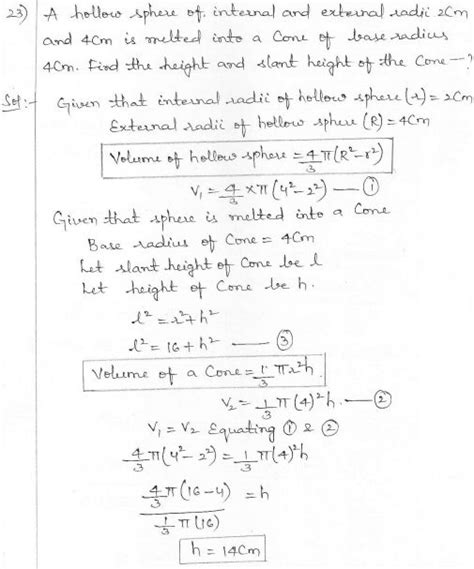 23) A hollow sphere of internal and external radii 2Cm
and 4Cm is melted into a Cone of base radius
4Cm. Find the height and slant height of the Cone —?
Sol:- Given that internal radii of hollow sphere (r) = 2Cm
External radii of hollow sphere (R) = 4Cm
Volume of hollow sphere = 4/3 π(R²-r²)
V₁ = 4/3 × π(4²-2²) — ①
Given that sphere is melted into a Cone
Base radius of Cone = 4Cm
Let slant height of Cone be l
Let height of Cone be h.
l² = r²+h²
l² = 16+h² — ③
Volume of a Cone = 1/3 πr²h.
V₂ = 1/3 π(4)²h. — ②
V₁ = V₂ Equating ① & ②
4/3 π(4²-2²) = 1/3 π(4)²h
4/3 π(16-4) / 1/3 π(16) = h
h = 14Cm